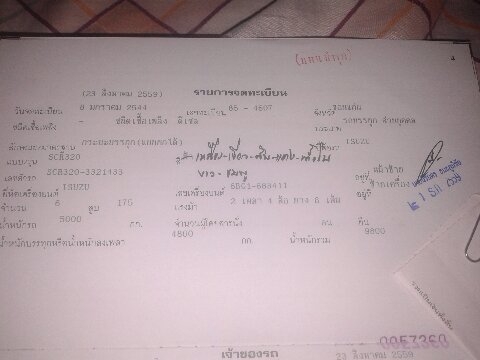 (แทนชำรุด)
(23 สิงหาคม 2559) รายการจดทะเบียน
วันจดทะเบียน 8 มกราคม 2544 เลขทะเบียน 85 - 4507 จังหวัด ขอนแก่น
ชนิดเชื้อเพลิง ดีเซล ประเภท รถบรรทุก ส่วนบุคคล
ลักษณะ/มาตรฐาน กระบะบรรทุก(ยกเทได้) ISUZU
แบบ/รุ่น SCR320 สี เหลือง-เขียว-
เลขตัวรถ SCR320-3321433 ขาว-ชมพู อยู่ที่ หน้าซ้าย
ยี่ห้อเครื่องยนต์ ISUZU เลขเครื่องยนต์ 6BG1-683411 อยู่ที่ ซ้ายเครื่อง
จำนวน 6 สูบ 175 แรงม้า 2 เพลา 4 ล้อ ยาง 6 เส้น
น้ำหนักรถ 5000 กก. จำนวนผู้โดยสารนั่ง คน ยืน
น้ำหนักบรรทุกหรือน้ำหนักลงเพลา 4800 กก. น้ำหนักรวม 9800
0057360
เจ้าของรถ 23 สิงหาคม 2559